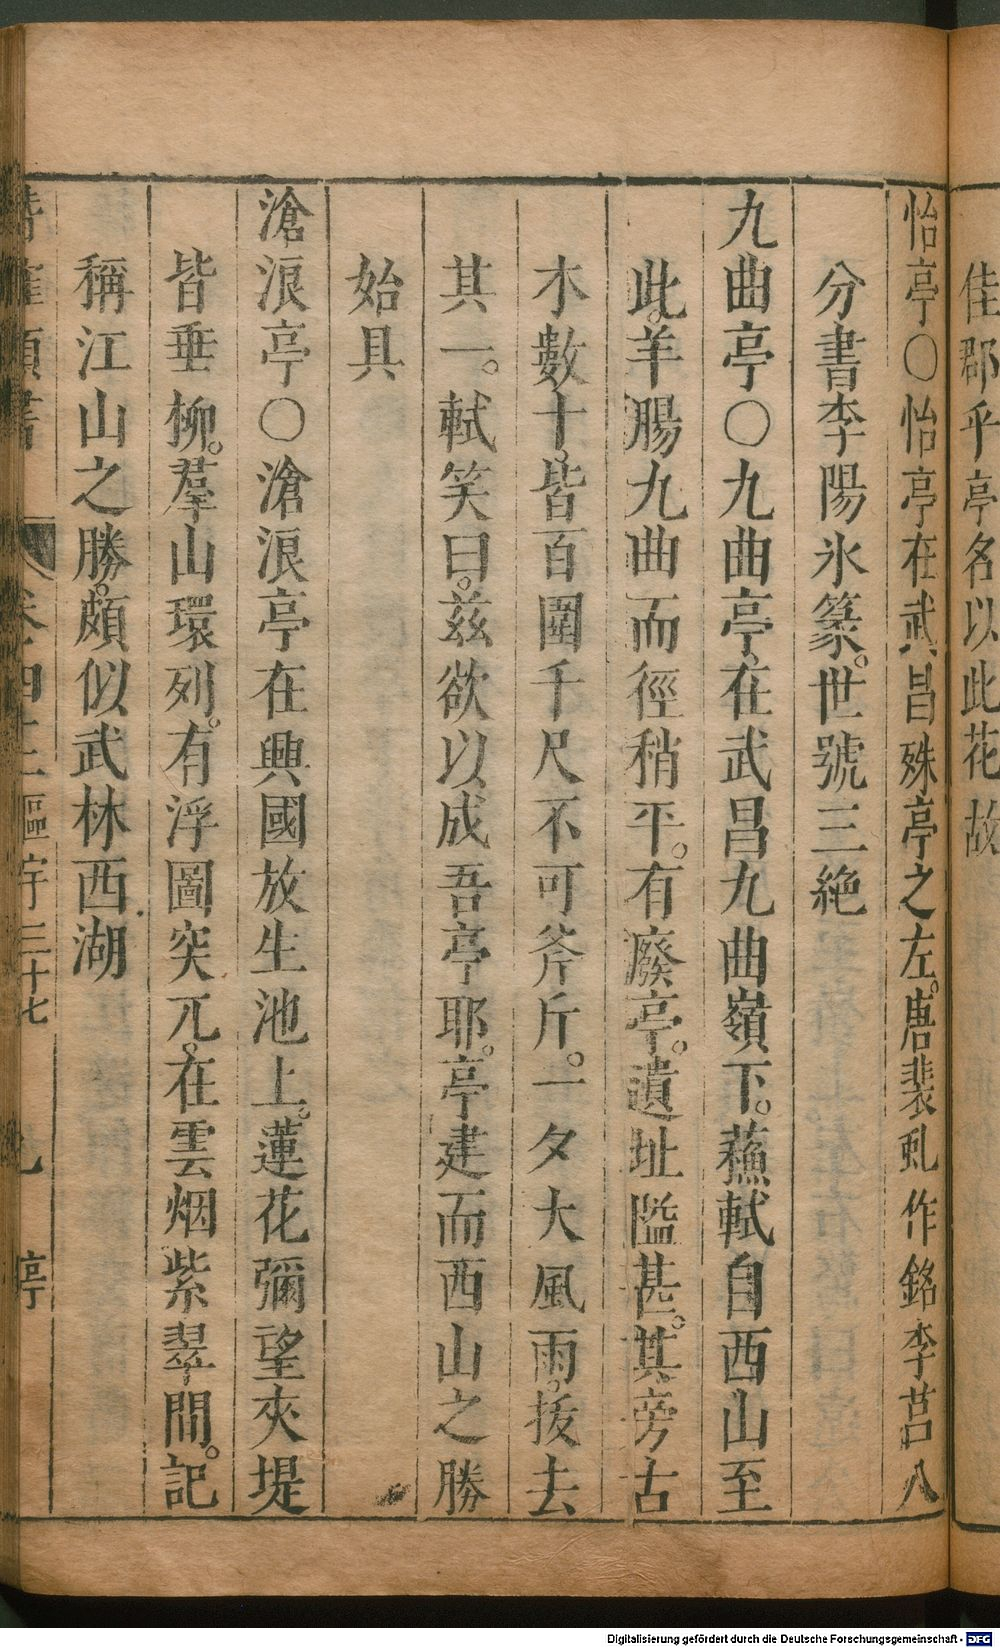 佳郡乎亭名以此花故
怡亭○怡亭在武昌殊亭之左。唐裴虬作銘李莒八
分書李陽氷篆。世號三絶
九曲亭○九曲亭在武昌九曲嶺下。蘓軾自西山至
此。羊腸九曲而徑稍平。有廢亭。遺址隘甚。其旁古
木數十。皆百圍千尺不可斧斤。一夕大風雨。拔去
其一。軾笑曰。兹欲以成吾亭耶。亭建而西山之勝
始具
滄浪亭○滄浪亭在興國放生池上。蓮花彌望夾堤
皆垂柳。羣山環列。有浮圖突兀。在雲烟紫翠間。記
稱江山之勝。頗似武林西湖
類書 卷四十二 區宇三十七 亭
Digitalisierung gefördert durch die Deutsche Forschungsgemeinschaft - DFG